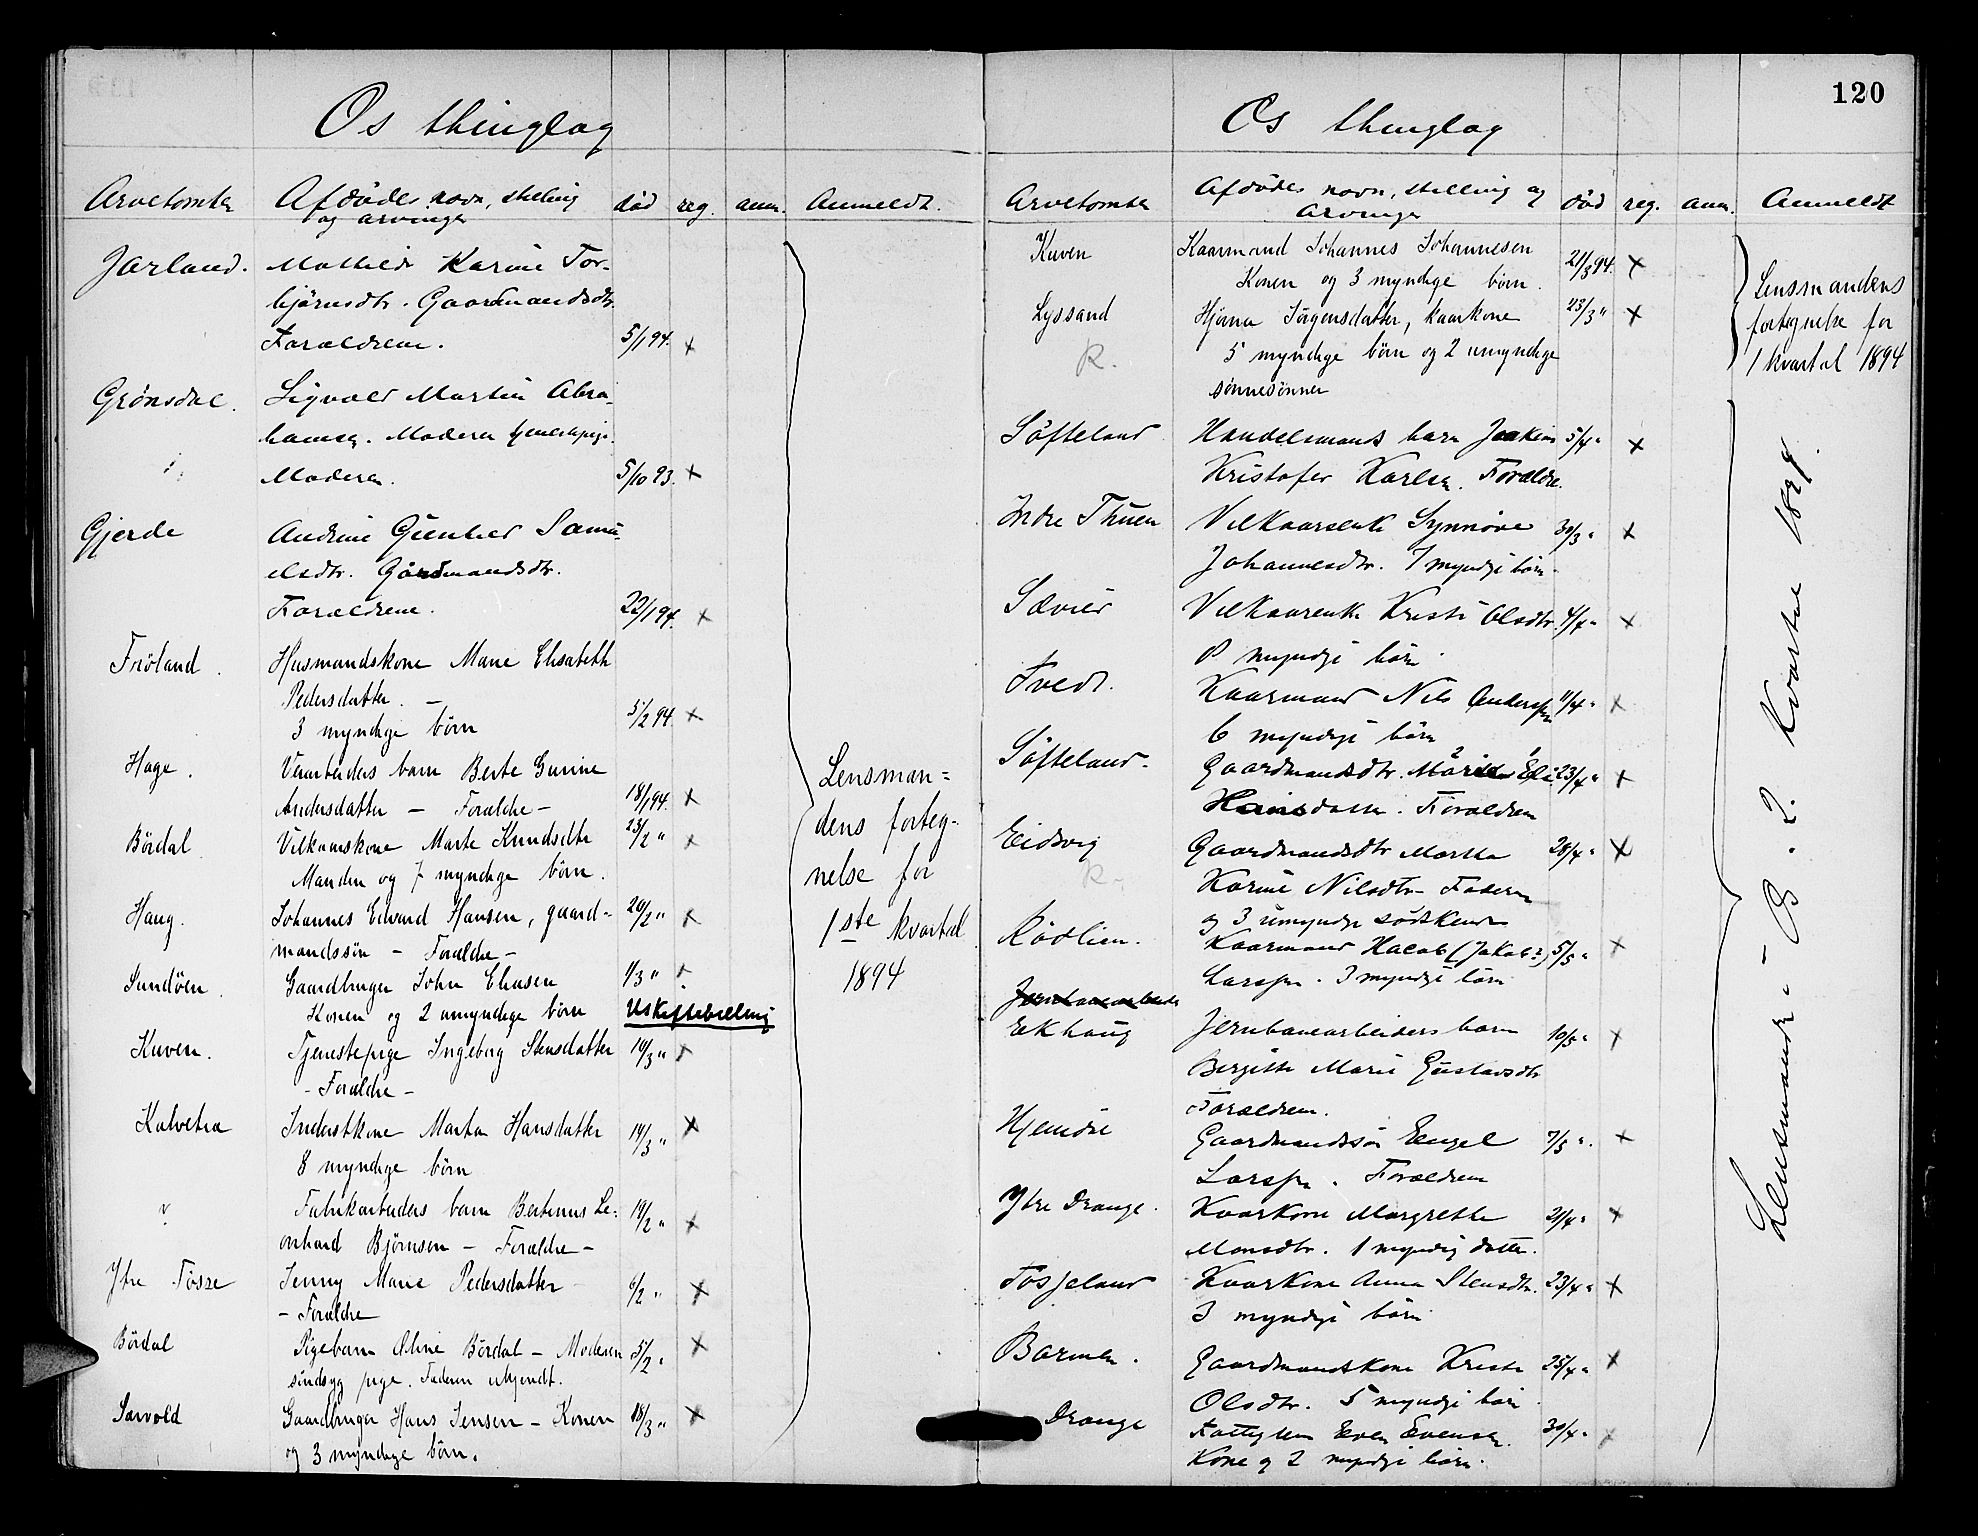 Os thinglag
Arvetomten Afdødes navn, stilling og arvinger død reg. anm. Anmeldt.
Jarland. Mathilde Karine Tor-
bjørnsdtr. Gaardmandsdtr.
Forældrene. 5/1 94. x
Grønsdal. Sigvald Martin Abra-
hamsen. Moderen tjenestepige.
Moderen. 5/10 93. x
Gjerde Andrine Gunhild Samu-
elsdtr. Gårdmandsdtr.
Forældrene. 22/1 94. x
Frøland. Husmandskone Marie Elisabeth
Pedersdatter. —
3 myndige børn 5/2 94. x
Hage. Veiarbeiders barn Berte Gurine
Andersdatter — Forældre — 18/1 94. x
Bördal Vilkaarskone Marte Knudsdtr 23/2 " x
Manden og 7 myndige børn.
Haug. Johannes Edvard Hansen, gaard- 20/2 " x
mandssøn — Forældre —
Sundöen. Gaardbruger John Eliasen 1/3 " x
Konen og 2 umyndige børn Uskiftebevilling
Kuven. Tjenestepige Ingeborg Stensdatter 10/3 " x
- Forældre -
Kalvetra Inderstkone Marta Hansdatter 14/3 " x
8 myndige børn
" Fabrikarbeiders barn Bertinus Le- 19/2 " x
onhard Bjørnsen — Forældre —
Ytre Tösse Jenny Marie Pedersdatter 6/2 " x
- Forældre
Bördal Pigebarn Oline Bördal — Moderen 5/2 " x
sindsyg pige. Faderen ukjendt.
Sørvold Gaardbruger Hans Jensen — Konen 18/3 " x
og 3 myndige børn.
Lensman-
dens forteg-
nelse for
1ste kvartal
1894
120
Os thinglag
Arvetomten Afdødes navn, stilling og arvinger død reg. anm. Anmeldt
Kuven Kaarmand Johannes Johannesen 21/3 94. x
Konen og 3 myndige børn.
Lyssand Jørgensdatter, kaarkone 23/3 " x
R. 5 myndige børn og 2 umyndige
sønnesønner
Lensmandens
fortegnelse for
1 kvartal 1894
Söfteland Handelsmands barn Joakim 5/4 " x
Kristofer Karlsen. Forældre.
Indre Thuen Vilkaarsenke Synnöve 30/3 " x
Johannesdtr. 7 myndige børn.
Sævild Vilkaarsenke Kristi Olsdtr. 4/4 " x
8 myndige børn.
Tvedt. Kaarmand Nils Andersen 11/4 " x
6 myndige børn
Söfteland. Gaardmandsdtr. Eli 23/4 " x
Hansdatter. Forældrene
Eidsvig Gaardmandsdtr Martha 28/4 " x
R. Karine Nilsdtr — Faderen
og 3 umyndige sødskende
Rödlien. Kaarmand Hacob (Jakob?) 5/5 " x
Larssen. 3 myndige børn
Jernbanearbeider
Ekhaug Jernbanearbeiders barn 10/5 " x
Bergitte Marie Gustavsdtr
Forældrene.
Hjemdre Gaardmandssøn Engel 7/5 " x
Larssen. Forældrene
Ytre Drange. Kaarkone Margrethe 21/4 " x
Monsdtr. 1 myndig datter.
Kaarkone Anna Stensdtr. 23/4 " x
3 myndige børn
Barmen. Gaardmandskone Kristi 25/4 " x
Olsdtr. 5 myndige børn
Drange Fattiglem Even Evensen. 30/4 " x
Kone og 2 myndige børn.
2. Kvartal 1894.